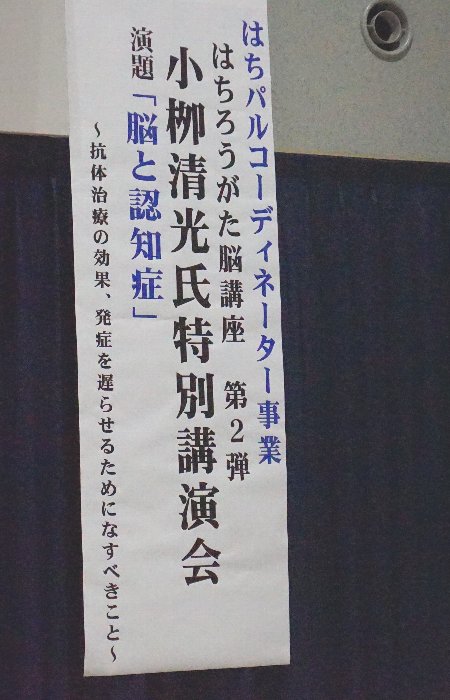 はちパルコーディネーター事業
はちろうがた脳講座　第2弾
小栁清光氏特別講演会
演題「脳と認知症」
～抗体治療の効果、発症を遅らせるためになすべきこと～